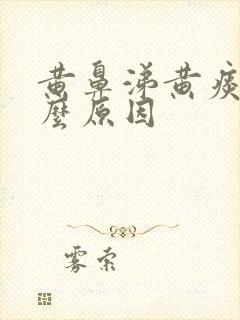 黄鼻涕黄痰
麼原因
雾索